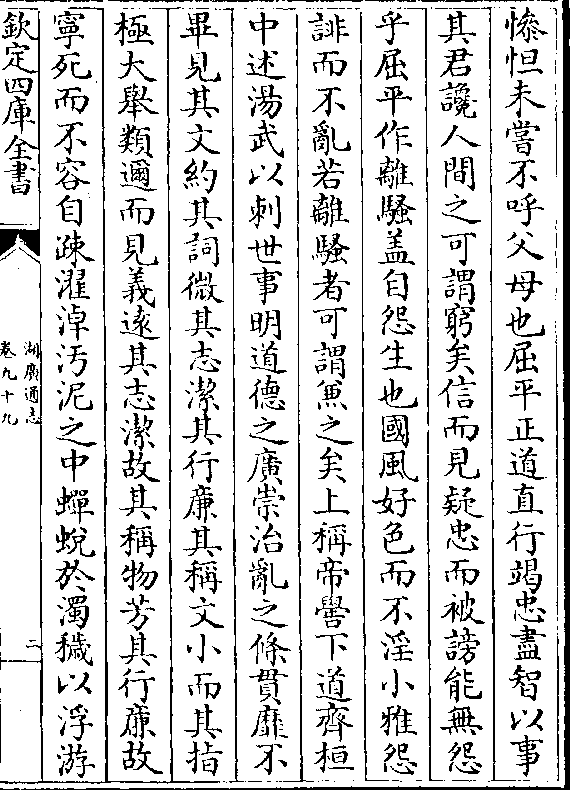 慘怛未嘗不呼父母也屈平正道直行竭忠盡智以事
其君讒人間之可謂窮矣信而見疑忠而被謗能無怨
乎屈平作離騷盖自怨生也國風好色而不淫小雅怨
誹而不亂若離騷者可謂兼之矣上稱帝嚳下道齊桓
中述湯武以刺世事明道德之廣崇治亂之條貫靡不
畢見其文約其詞微其志潔其行亷其稱文小而其指
極大舉類邇而見義逺其志潔故其稱物芳其行亷故
寧死而不容自疎濯淖汚泥之中蟬蛻於濁穢以浮游
欽定四庫全書
湖廣通志
卷九十九
二